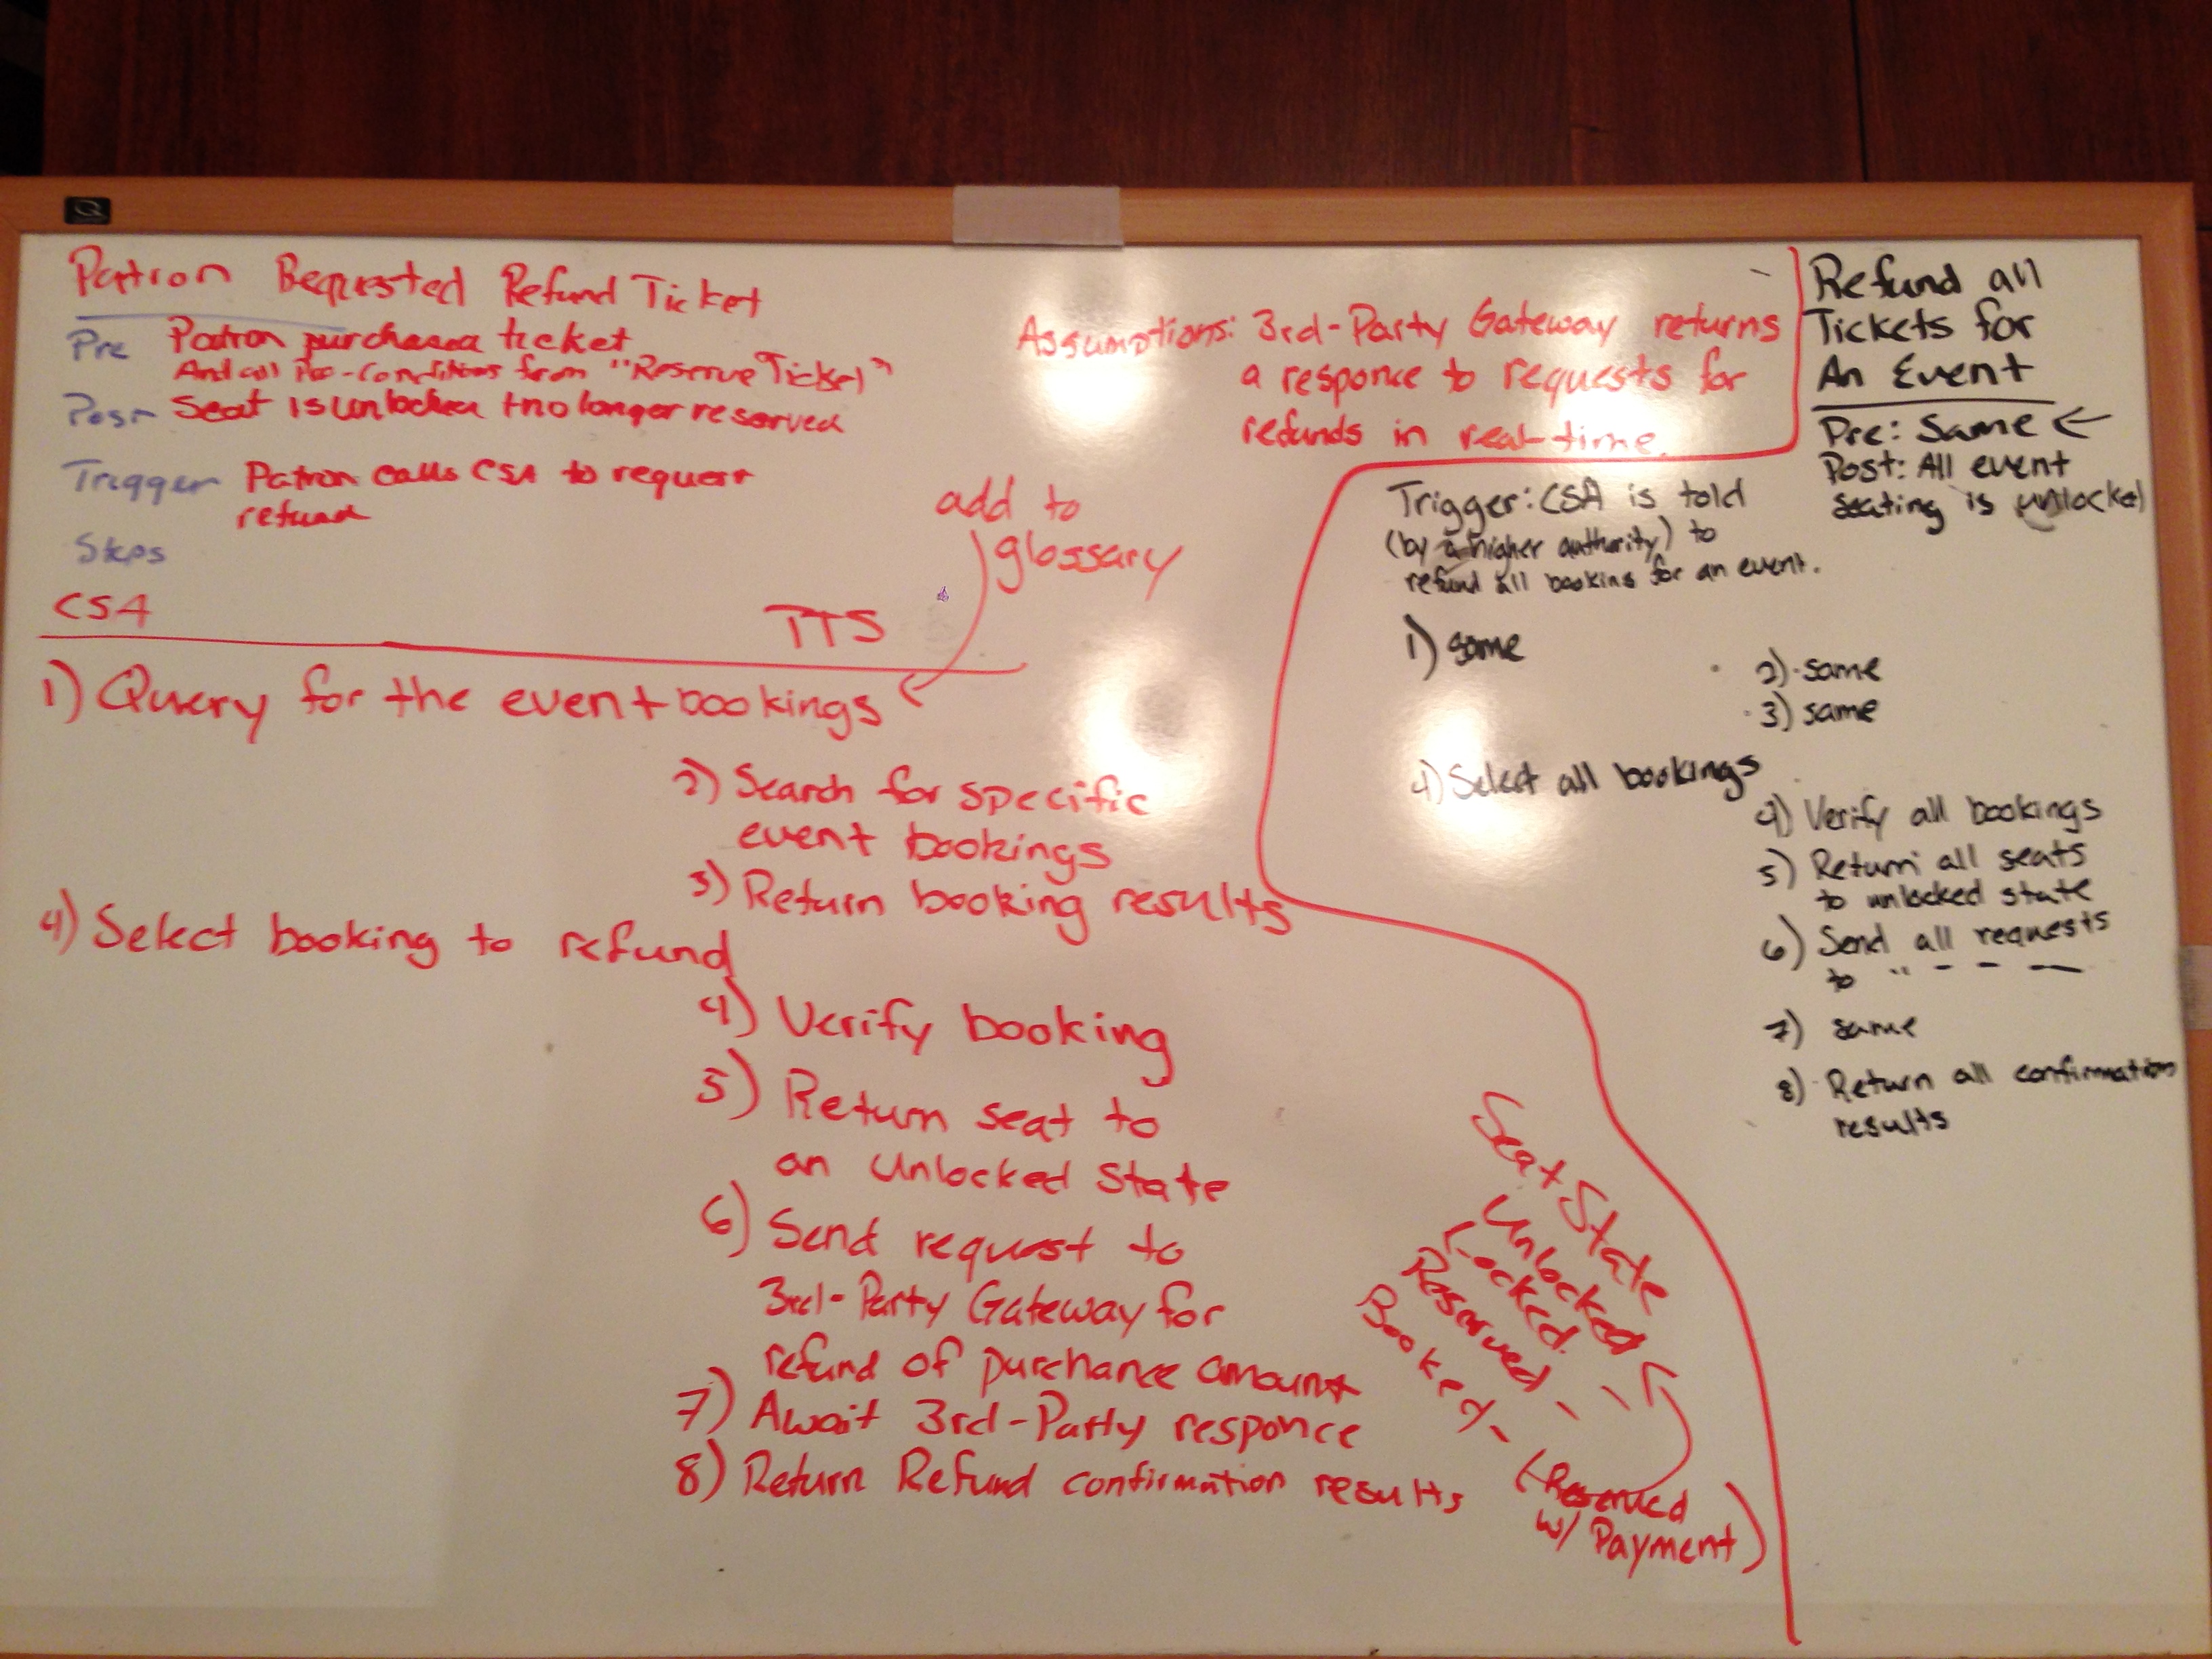 Patron Requested Refund Ticket
Pre Patron purchased ticket
And all Pre-conditions from "Reserve Ticket"
Post Seat is unlocked + no longer reserved
Trigger Patron calls CSA to request
refund
Steps
CSA TTS
add to
glossary
1) Query for the event bookings
2) Search for specific
event bookings
3) Return booking results
4) Select booking to refund
4) Verify booking
5) Return seat to
an unlocked state
6) Send request to
3rd-Party Gateway for
refund of purchance amount
7) Await 3rd-Party responce
8) Return Refund confirmation results
Assumptions: 3rd-Party Gateway returns
a responce to requests for
refunds in real-time.
Seat State
Unlocked
Locked
Reserved -
Booked -
(Reserved
w/ Payment)
Refund all
Tickets for
An Event
Pre: Same
Post: All event
seating is unlocked
Trigger: CSA is told
(by a higher authority) to
refund all bookins for an event.
1) same
2) same
3) same
4) Select all bookings
4) Verify all bookings
5) Return all seats
to unlocked state
6) Send all requests
to " - - -
7) same
8) Return all confirmation
results